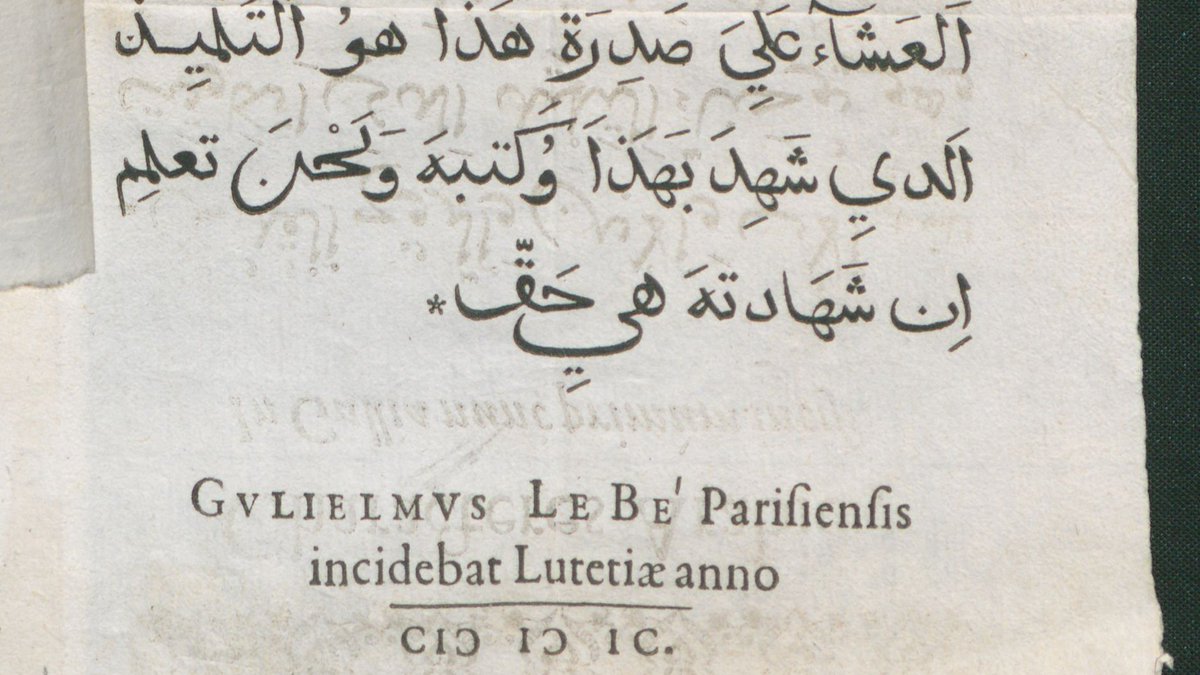 اَلعَشَآء عَليِ صَدِرَة هَذا هوُ التَلمِيِذ
الَدي شَهِدَ بهَذَا وُكَتبهَ وَنَحْنَ تعلمِ
اِن شَهَادتهَ هي حَقّ *
GVLIELMVS LE BE' Pariſienſis
incidebat Lutetiæ anno
CIↃ IↃ IC.